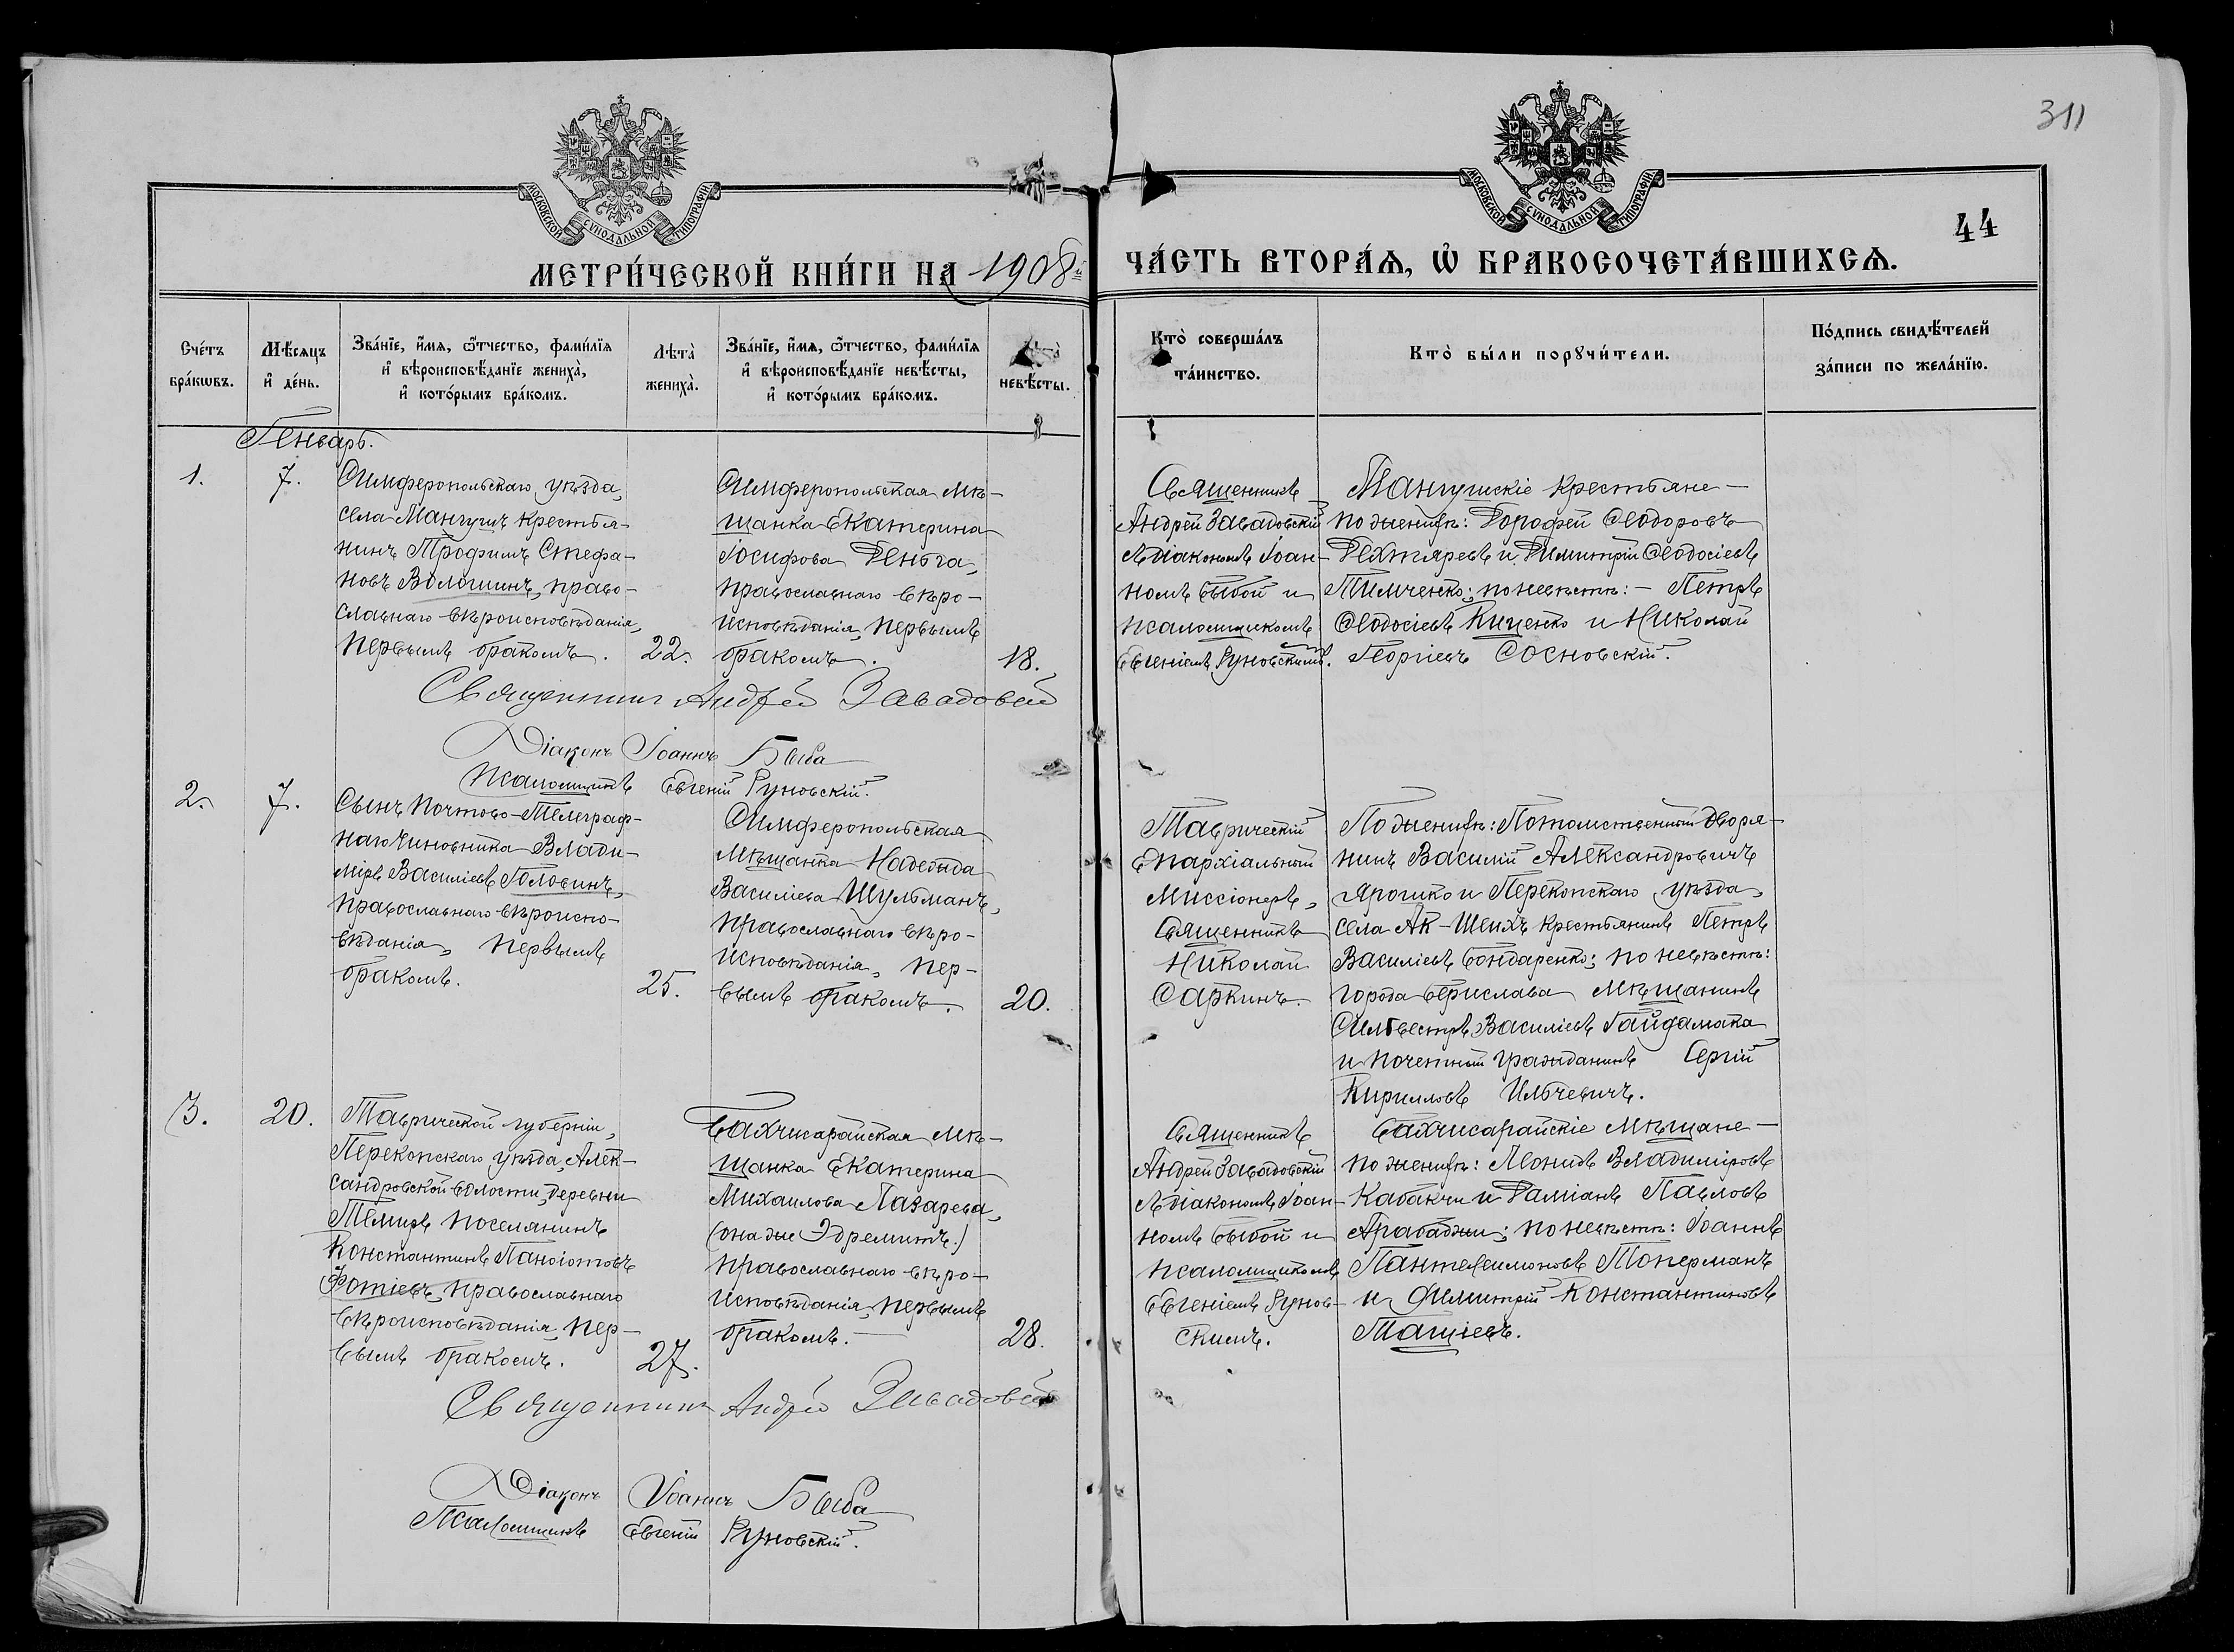 311
МОСКОВСКОЙ СУНОДАЛЬНОЙ ТИПОГРАФІИ
МОСКОВСКОЙ СУНОДАЛЬНОЙ ТИПОГРАФІИ
44
МЕТРИ́ЧЕСКОЙ КНИ́ГИ НА 1908й
ЧА́СТЬ ВТОРА́Ѧ, Ѡ҆ БРАКОСОЧЕТА́ВШИХСѦ.
Сче́тъ
бра́кѡвъ.
Мѣ́сяцъ
и҆ де́нь.
Зва́нїе, и҆́мѧ, ѻ҆́тчество, фами́лїѧ
и҆ вѣроисповѣ́данїе жениха̀,
и҆ кото́рымъ бра́комъ.
Лѣта̀
жениха̀.
Зва́нїе, и҆́мѧ, ѻ҆́тчество, фами́лїѧ
и҆ вѣроисповѣ́данїе невѣ́сты,
и҆ кото́рымъ бра́комъ.
невѣ́сты.
Кто̀ соверша́лъ
та́инство.
Кто̀ бы́ли порꙋчи́тели.
По́дпись свидѣ́телей
за́писи по жела́нїю.
Генварь.
1.
7.
Симферопольскаго уѣзда,
села Мангушъ крестья-
нинъ Трофимъ Стефа-
новъ Волошинъ, право-
славнаго вѣроисповѣданія,
первымъ бракомъ.
22.
Симферопольская мѣ-
щанка Екатерина
Іосифова Деньга,
православнаго вѣро-
исповѣданія, первымъ
бракомъ.
18.
Священникъ
Андрей Завадовскій
съ діакономъ Іоан-
номъ Быбой и
псаломщикомъ
Евгеніемъ Руновскимъ.
Мангушскіе крестьяне -
по женихѣ: Дорофей Ѳеодоровъ
Дехтяревъ и Димитрій Ѳеодосіевъ
Тимченко; по невѣстѣ: - Петръ
Ѳеодосіевъ Киценко и Николай
Георгіевъ Сосновскій.
Священникъ Андрей Завадовскій
Діаконъ Іоаннъ Быба
Псаломщикъ Евгеній Руновскій.
2.
7.
Сынъ почтово-телеграф-
наго чиновника Влади-
міръ Василіевъ Головинъ,
православнаго вѣроиспо-
вѣданія, первымъ
бракомъ.
25.
Симферопольская
мѣщанка Надежда
Василіева Шульманъ,
православнаго вѣро-
исповѣданія, пер-
вымъ бракомъ.
20.
Таврическій
Епархіальный
Миссіонеръ,
Священникъ
Николай
Саркинъ.
По женихѣ: Потомственный дворя-
нинъ Василій Александровичъ
Ярошко и Перекопскаго уѣзда,
села Ак-Шеихъ крестьянинъ Петръ
Василіевъ Бондаренко; по невѣстѣ:
города Берислава мѣщанинъ
Сильвестръ Василіевъ Гайдамака
и почетный гражданинъ Сергій
Кирилловъ Ильчевичъ.
3.
20.
Таврической губерніи,
Перекопскаго уѣзда, Алек-
сандровской волости, деревни
Темиръ поселянинъ
Константинъ Панаіотовъ
Фотіевъ, православнаго
вѣроисповѣданія, пер-
вымъ бракомъ.
27.
Бахчисарайская мѣ-
щанка Екатерина
Михаилова Лазарева,
(она же Эдремитъ.)
православнаго вѣро-
исповѣданія, первымъ
бракомъ.
28.
Священникъ
Андрей Завадовскій
съ діакономъ Іоан-
номъ Быбой и
псаломщикомъ
Евгеніемъ Рунов-
скимъ.
Бахчисарайскіе мѣщане -
по женихѣ: Леонидъ Владиміровъ
Кабакчи и Даміанъ Павловъ
Арабаджи; по невѣстѣ: Іоаннъ
Пантелеимоновъ Топерманъ
и Димитрій Константиновъ
Тащіевъ.
Священникъ Андрей Завадовскій
Діаконъ Іоаннъ Быба
Псаломщикъ Евгеній Руновскій.